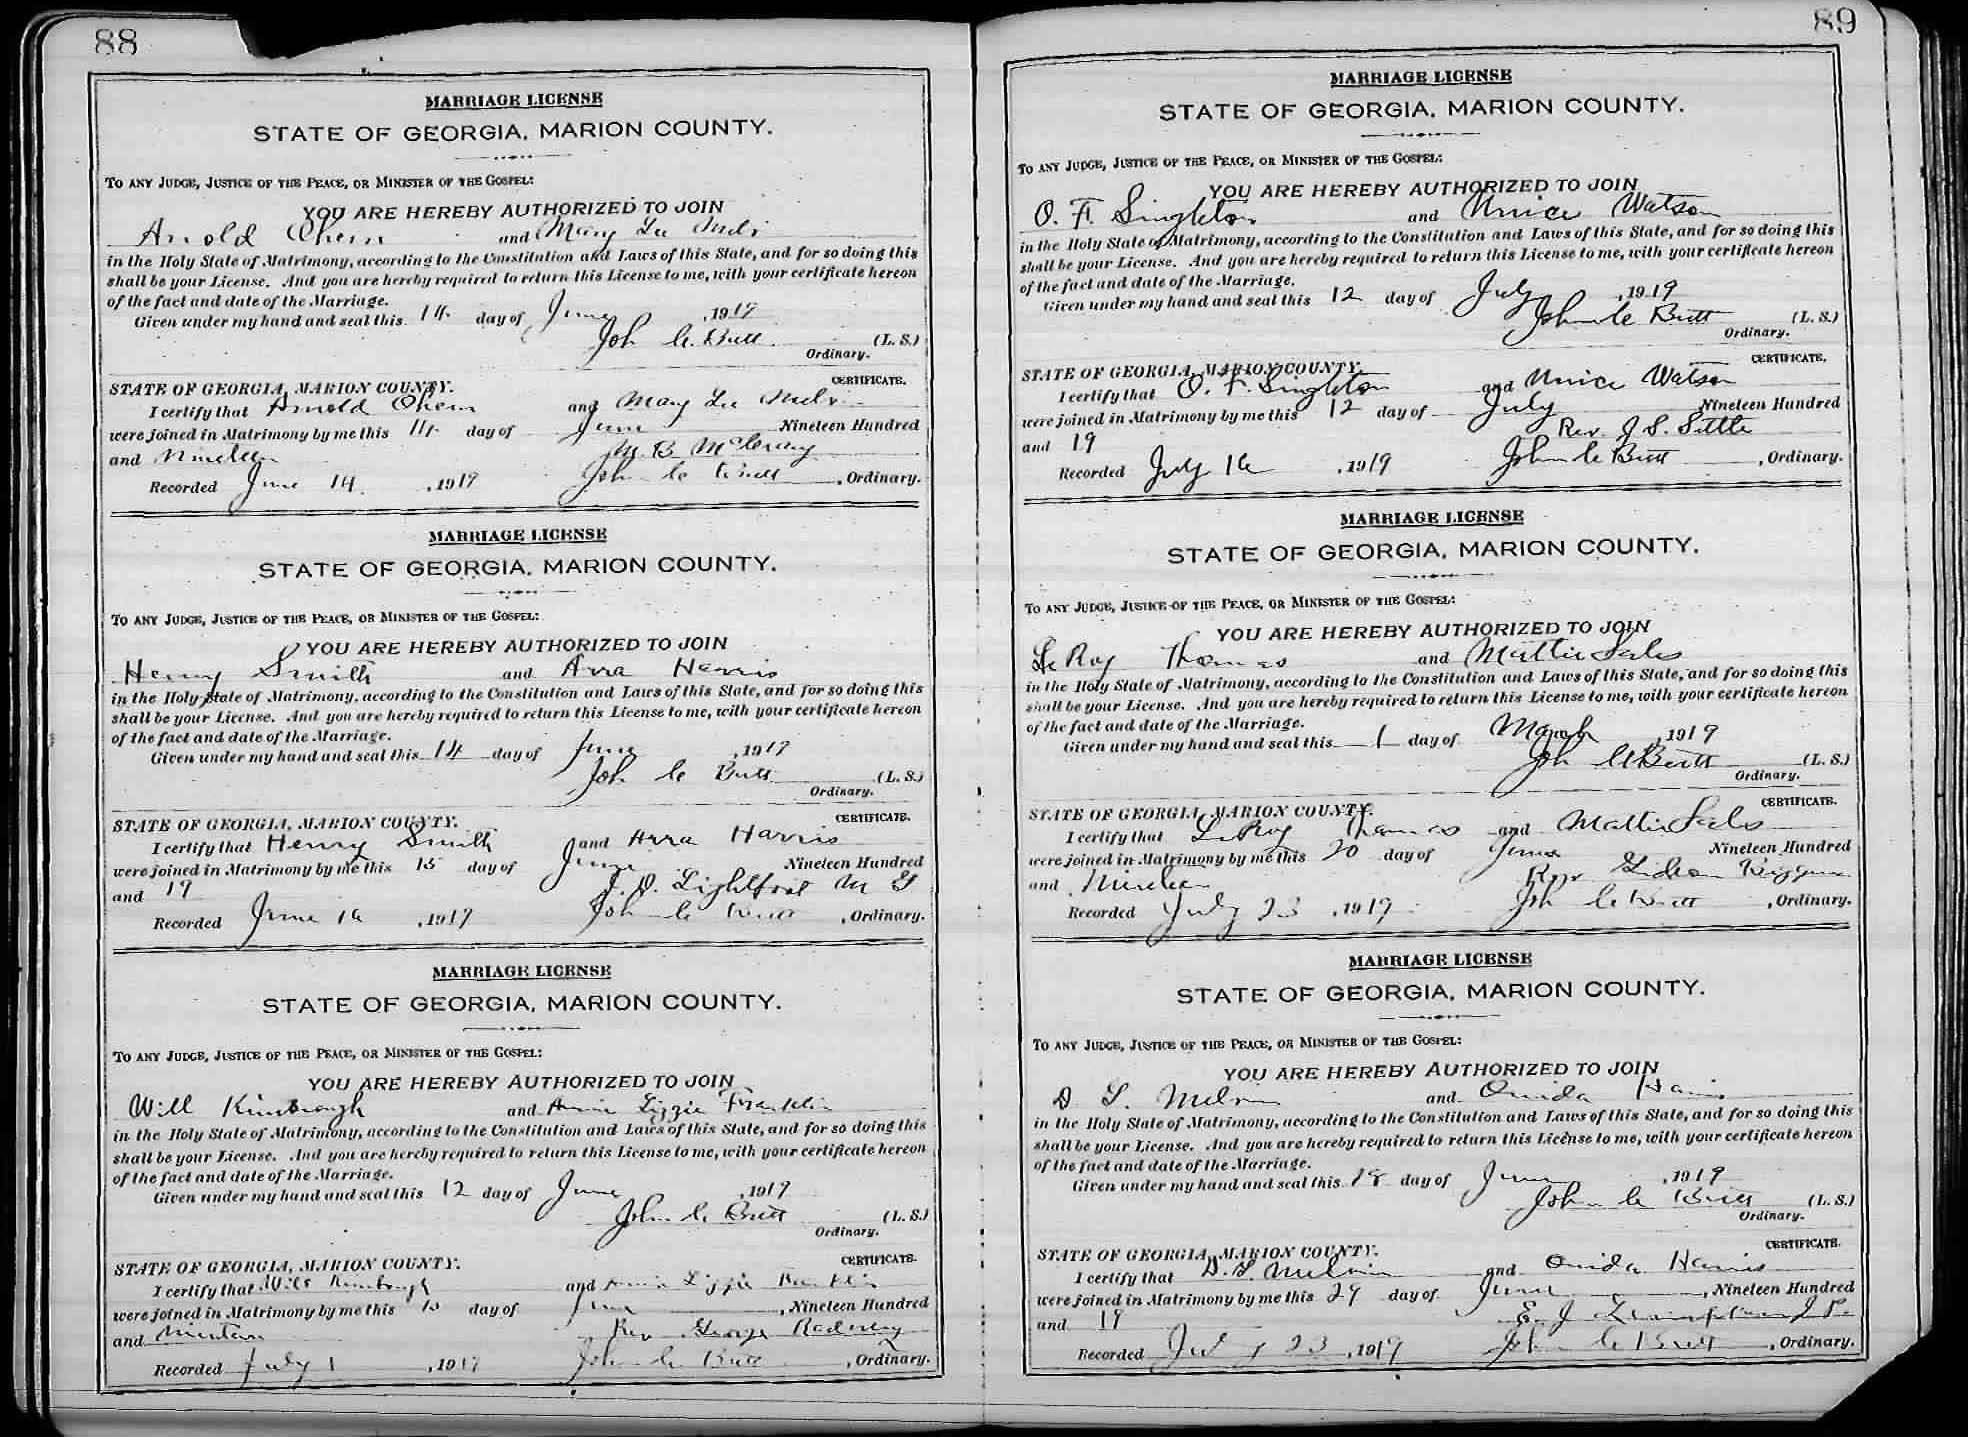 88
MARRIAGE LICENSE
STATE OF GEORGIA, MARION COUNTY.
TO ANY JUDGE, JUSTICE OF THE PEACE, OR MINISTER OF THE GOSPEL:
YOU ARE HEREBY AUTHORIZED TO JOIN
Arnold and Mary Lu
in the Holy State of Matrimony, according to the Constitution and Laws of this State, and for so doing this
shall be your License. And you are hereby required to return this License to me, with your certificate hereon
of the fact and date of the Marriage.
Given under my hand and seal this 14 day of June, 1919
Joh C. Butt (L. S.)
Ordinary.
CERTIFICATE.
STATE OF GEORGIA, MARION COUNTY.
I certify that Arnold and Mary Lu
were joined in Matrimony by me this 14 day of June Nineteen Hundred
and Nineteen M. B. McCrary
Recorded June 14, 1919 John C Butt, Ordinary.
MARRIAGE LICENSE
STATE OF GEORGIA, MARION COUNTY.
TO ANY JUDGE, JUSTICE OF THE PEACE, OR MINISTER OF THE GOSPEL:
YOU ARE HEREBY AUTHORIZED TO JOIN
Henry Smith and Arra Harris
in the Holy State of Matrimony, according to the Constitution and Laws of this State, and for so doing this
shall be your License. And you are hereby required to return this License to me, with your certificate hereon
of the fact and date of the Marriage.
Given under my hand and seal this 14 day of June, 1919
Joh C Butt (L. S.)
Ordinary.
CERTIFICATE.
STATE OF GEORGIA, MARION COUNTY.
I certify that Henry Smith and Arra Harris
were joined in Matrimony by me this 15 day of June Nineteen Hundred
and 19 J. D. Lightfoot M G
Recorded June, 1919 Joh C Butt, Ordinary.
MARRIAGE LICENSE
STATE OF GEORGIA, MARION COUNTY.
TO ANY JUDGE, JUSTICE OF THE PEACE, OR MINISTER OF THE GOSPEL:
YOU ARE HEREBY AUTHORIZED TO JOIN
Will Kimbrough and Annie Lizzie Franklin
in the Holy State of Matrimony, according to the Constitution and Laws of this State, and for so doing this
shall be your License. And you are hereby required to return this License to me, with your certificate hereon
of the fact and date of the Marriage.
Given under my hand and seal this 12 day of June, 1919
John C Butt (L. S.)
Ordinary.
CERTIFICATE.
STATE OF GEORGIA, MARION COUNTY.
I certify that Will Kimbrough and Annie Lizzie Franklin
were joined in Matrimony by me this 15 day of June, Nineteen Hundred
and Rev George
Recorded July 1, 1919 John C Butt, Ordinary.
89
MARRIAGE LICENSE
STATE OF GEORGIA, MARION COUNTY.
TO ANY JUDGE, JUSTICE OF THE PEACE, OR MINISTER OF THE GOSPEL:
YOU ARE HEREBY AUTHORIZED TO JOIN
O. F. Singleton and Unice Watson
in the Holy State of Matrimony, according to the Constitution and Laws of this State, and for so doing this
shall be your License. And you are hereby required to return this License to me, with your certificate hereon
of the fact and date of the Marriage.
Given under my hand and seal this 12 day of July, 1919
John C Butt (L. S.)
Ordinary.
CERTIFICATE.
STATE OF GEORGIA, MARION COUNTY.
I certify that O. F. Singleton and Unice Watson
were joined in Matrimony by me this 12 day of July Nineteen Hundred
and 19 Rev. J. S. Settle
Recorded July, 1919 John C Butt, Ordinary.
MARRIAGE LICENSE
STATE OF GEORGIA, MARION COUNTY.
TO ANY JUDGE, JUSTICE OF THE PEACE, OR MINISTER OF THE GOSPEL:
YOU ARE HEREBY AUTHORIZED TO JOIN
LeRoy Thomas and Mattie Seals
in the Holy State of Matrimony, according to the Constitution and Laws of this State, and for so doing this
shall be your License. And you are hereby required to return this License to me, with your certificate hereon
of the fact and date of the Marriage.
Given under my hand and seal this 1 day of March, 1919
Joh C Butt (L. S.)
Ordinary.
CERTIFICATE.
STATE OF GEORGIA, MARION COUNTY.
I certify that LeRoy Thomas and Mattie Seals
were joined in Matrimony by me this 20 day of June Nineteen Hundred
and Nineteen Rev Gideon
Recorded July 23, 1919 Joh C Butt, Ordinary.
MARRIAGE LICENSE
STATE OF GEORGIA, MARION COUNTY.
TO ANY JUDGE, JUSTICE OF THE PEACE, OR MINISTER OF THE GOSPEL:
YOU ARE HEREBY AUTHORIZED TO JOIN
D. L. Melvin and Onida Harris
in the Holy State of Matrimony, according to the Constitution and Laws of this State, and for so doing this
shall be your License. And you are hereby required to return this License to me, with your certificate hereon
of the fact and date of the Marriage.
Given under my hand and seal this 28 day of June, 1919
John C Butt (L. S.)
Ordinary.
CERTIFICATE.
STATE OF GEORGIA, MARION COUNTY.
I certify that D. L. Melvin and Onida Harris
were joined in Matrimony by me this 29 day of June, Nineteen Hundred
and 19 E. J. J. P.
Recorded July 23, 1919 John C Butt, Ordinary.